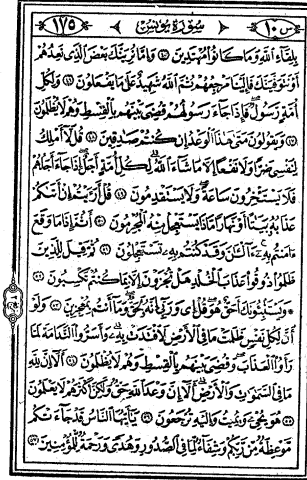 س ١٠ سورة يونس ١٧٥
بِلِقَاءِ اللَّهِ وَمَا كَانُوا مُهْتَدِينَ ۝ وَإِمَّا نُرِيَنَّكَ بَعْضَ الَّذِي نَعِدُهُمْ
أَوْ نَتَوَفَّيَنَّكَ فَإِلَيْنَا مَرْجِعُهُمْ ثُمَّ اللَّهُ شَهِيدٌ عَلَىٰ مَا يَفْعَلُونَ ۝ وَلِكُلِّ
أُمَّةٍ رَسُولٌ فَإِذَا جَاءَ رَسُولُهُمْ قُضِيَ بَيْنَهُمْ بِالْقِسْطِ وَهُمْ لَا يُظْلَمُونَ
۝ وَيَقُولُونَ مَتَىٰ هَٰذَا الْوَعْدُ إِنْ كُنْتُمْ صَادِقِينَ ۝ قُلْ لَا أَمْلِكُ
لِنَفْسِي ضَرًّا وَلَا نَفْعًا إِلَّا مَا شَاءَ اللَّهُ لِكُلِّ أُمَّةٍ أَجَلٌ إِذَا جَاءَ أَجَلُهُمْ
فَلَا يَسْتَأْخِرُونَ سَاعَةً وَلَا يَسْتَقْدِمُونَ ۝ قُلْ أَرَأَيْتُمْ إِنْ أَتَاكُمْ
عَذَابُهُ بَيَاتًا أَوْ نَهَارًا مَاذَا يَسْتَعْجِلُ مِنْهُ الْمُجْرِمُونَ ۝ أَثُمَّ إِذَا مَا وَقَعَ
ءَامَنْتُمْ بِهِ ءَآلْآنَ وَقَدْ كُنْتُمْ بِهِ تَسْتَعْجِلُونَ ۝ ثُمَّ قِيلَ لِلَّذِينَ
ظَلَمُوا ذُوقُوا عَذَابَ الْخُلْدِ هَلْ تُجْزَوْنَ إِلَّا بِمَا كُنْتُمْ تَكْسِبُونَ ۝
وَيَسْتَنْبِئُونَكَ أَحَقٌّ هُوَ قُلْ إِي وَرَبِّي إِنَّهُ لَحَقٌّ وَمَا أَنْتُمْ بِمُعْجِزِينَ ۝ وَلَوْ
أَنَّ لِكُلِّ نَفْسٍ ظَلَمَتْ مَا فِي الْأَرْضِ لَافْتَدَتْ بِهِ وَأَسَرُّوا النَّدَامَةَ لَمَّا
رَأَوُا الْعَذَابَ وَقُضِيَ بَيْنَهُمْ بِالْقِسْطِ وَهُمْ لَا يُظْلَمُونَ ۝ أَلَا إِنَّ لِلَّهِ
مَا فِي السَّمَاوَاتِ وَالْأَرْضِ أَلَا إِنَّ وَعْدَ اللَّهِ حَقٌّ وَلَٰكِنَّ أَكْثَرَهُمْ لَا يَعْلَمُونَ
۝ هُوَ يُحْيِي وَيُمِيتُ وَإِلَيْهِ تُرْجَعُونَ ۝ يَا أَيُّهَا النَّاسُ قَدْ جَاءَتْكُمْ
مَوْعِظَةٌ مِنْ رَبِّكُمْ وَشِفَاءٌ لِمَا فِي الصُّدُورِ وَهُدًى وَرَحْمَةٌ لِلْمُؤْمِنِينَ